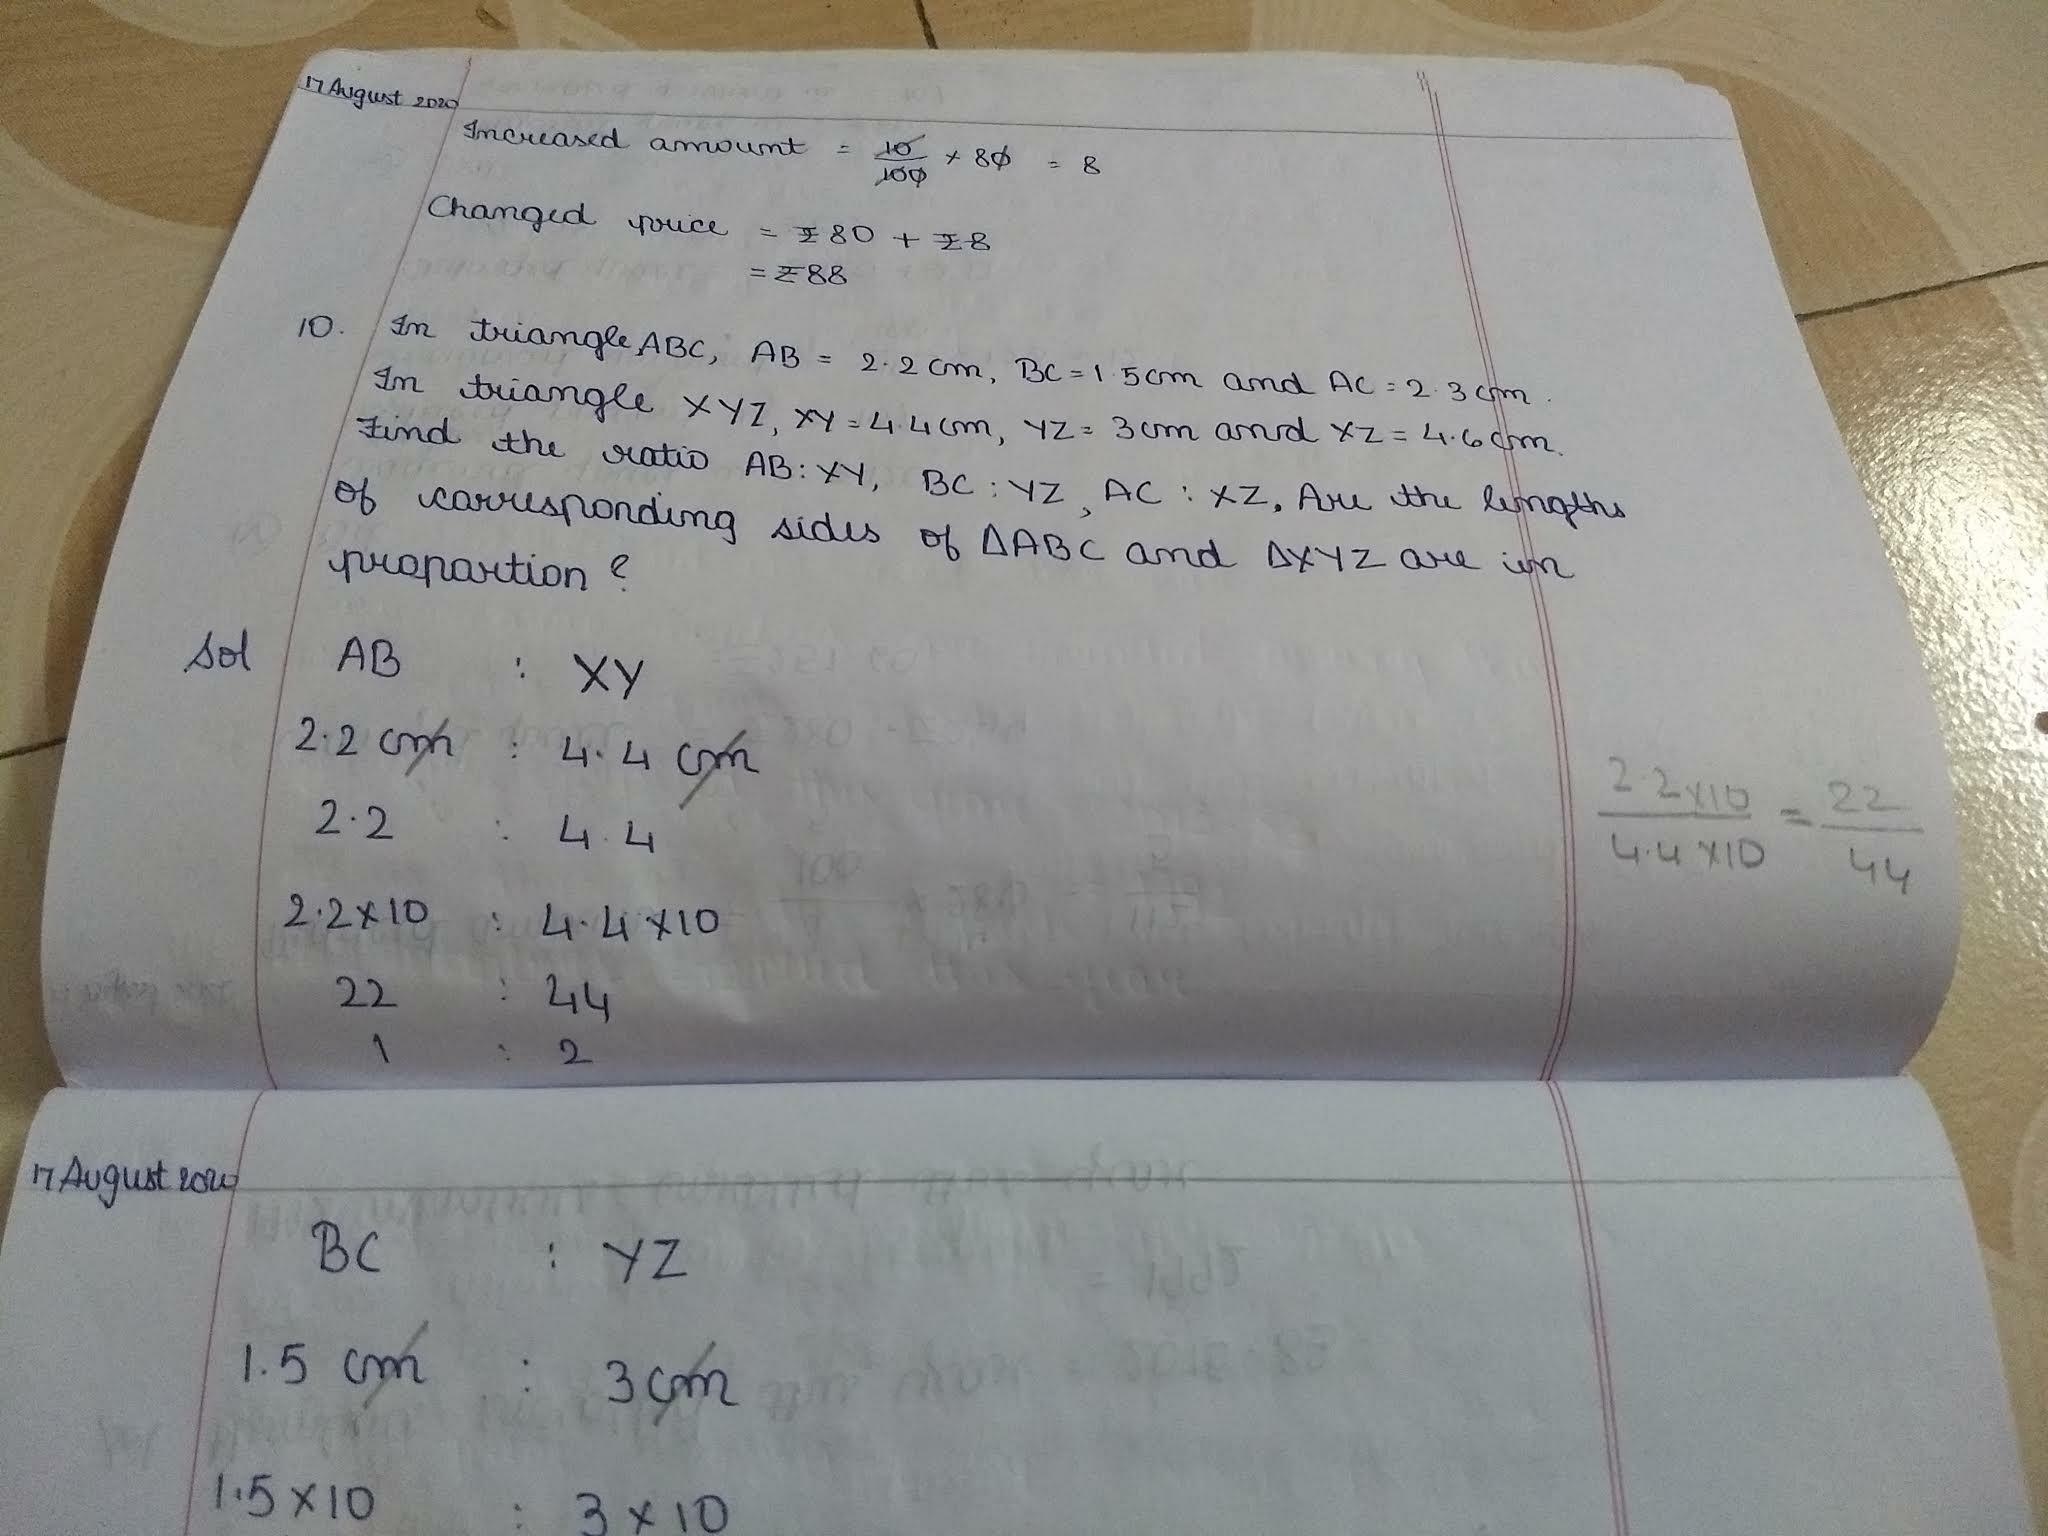 17 August 2020
Increased amount = 10/100 × 80 = 8
Changed price = ₹80 + ₹8
= ₹88
10. In triangle, ABC, AB = 2.2 cm, BC = 1.5cm and AC = 2.3 cm.
In triangle XYZ, XY = 4.4cm, YZ = 3cm and XZ = 4.6cm.
Find the ratio AB : XY, BC : YZ, AC : XZ. Are the lengths
of corresponding sides of ΔABC and ΔXYZ are in
propartion?
Sol AB : XY
2.2 cm : 4.4 cm
2.2 : 4.4
2.2×10 / 4.4×10 = 22/44
2.2×10 : 4.4×10
22 : 44
1 : 2
17 August 2020
BC : YZ
1.5 cm : 3cm
1.5×10 : 3×10